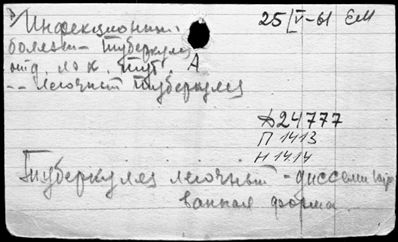 Инфекционн. 25/V-61 ЕМ
болезни - Туберкулез
отд. л. к. туб. А
-- Легочный туберкулез
Д24777
П 1413
Н 1414
Туберкулез легочный - диссемини
ванная форма.